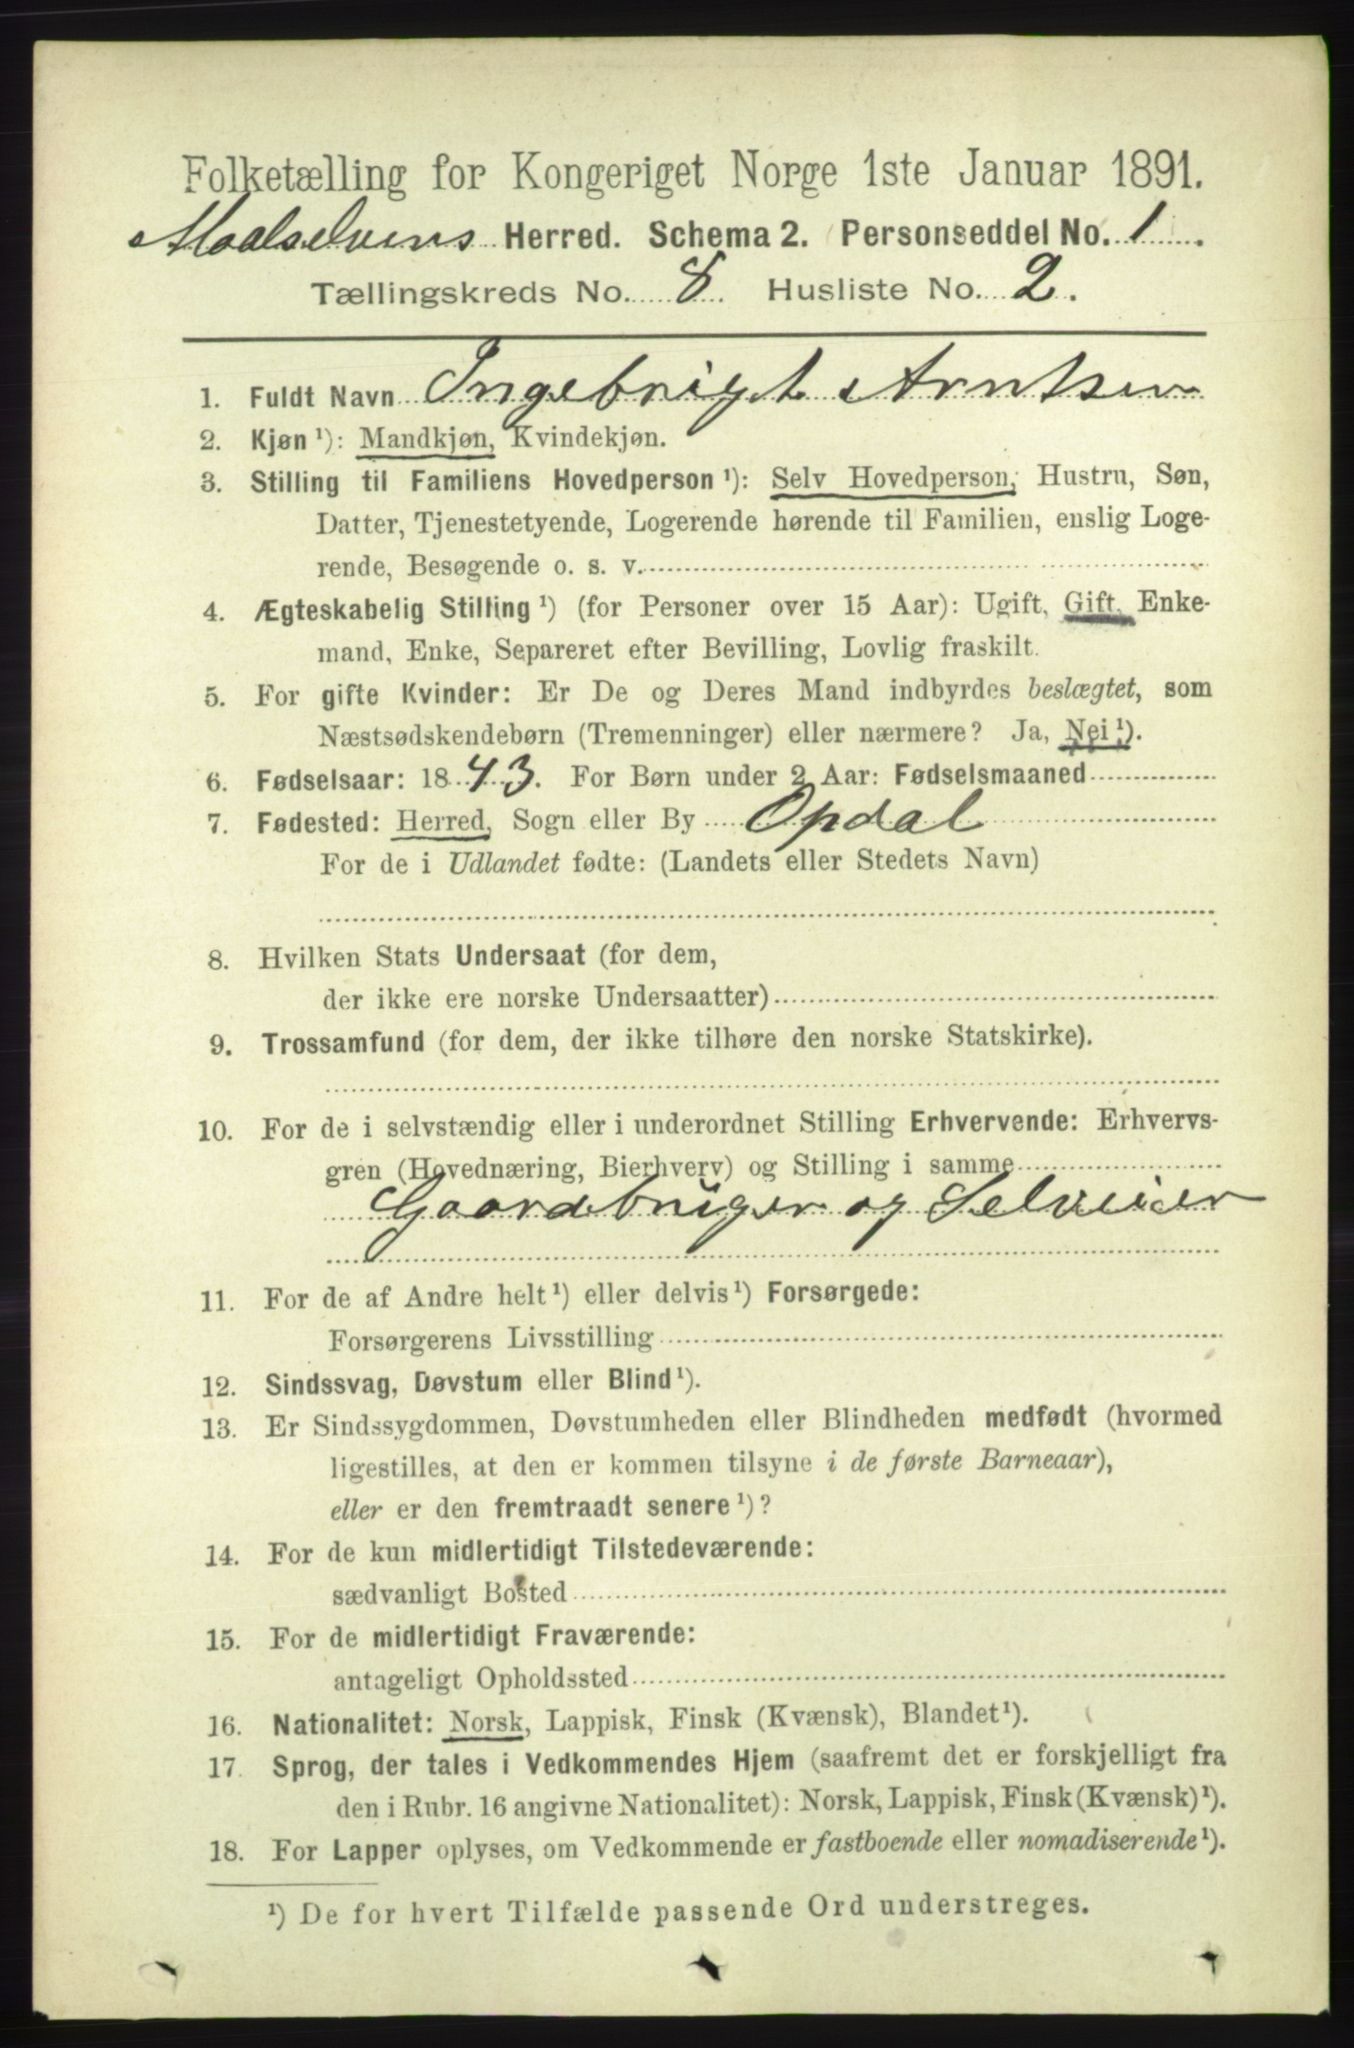 Folketælling for Kongeriget Norge 1ste Januar 1891.
Maalselvens Herred. Schema 2. Personseddel No. 1.
Tællingskreds No. 8. Husliste No. 2.
1. Fuldt Navn Ingebrigt Arntsen
2. Kjøn ¹): Mandkjøn, Kvindekjøn.
3. Stilling til Familiens Hovedperson ¹): Selv Hovedperson, Hustru, Søn,
Datter, Tjenestetyende, Logerende hørende til Familien, enslig Loge-
rende, Besøgende o. s. v.
4. Ægteskabelig Stilling ¹) (for Personer over 15 Aar): Ugift, Gift, Enke-
mand, Enke, Separeret efter Bevilling, Lovlig fraskilt.
5. For gifte Kvinder: Er De og Deres Mand indbyrdes beslægtet, som
Næstsødskendebørn (Tremenninger) eller nærmere? Ja, Nei ¹).
6. Fødselsaar: 1843. For Børn under 2 Aar: Fødselsmaaned
7. Fødested: Herred, Sogn eller By Opdal
For de i Udlandet fødte: (Landets eller Stedets Navn)
8. Hvilken Stats Undersaat (for dem,
der ikke ere norske Undersaatter)
9. Trossamfund (for dem, der ikke tilhøre den norske Statskirke).
10. For de i selvstændig eller i underordnet Stilling Erhvervende: Erhvervs-
gren (Hovednæring, Bierhverv) og Stilling i samme
Gaardbruger og Selveier
11. For de af Andre helt ¹) eller delvis ¹) Forsørgede:
Forsørgerens Livsstilling
12. Sindssvag, Døvstum eller Blind ¹).
13. Er Sindssygdommen, Døvstumheden eller Blindheden medfødt (hvormed
ligestilles, at den er kommen tilsyne i de første Barneaar),
eller er den fremtraadt senere ¹)?
14. For de kun midlertidigt Tilstedeværende:
sædvanligt Bosted
15. For de midlertidigt Fraværende:
antageligt Opholdssted
16. Nationalitet: Norsk, Lappisk, Finsk (Kvænsk), Blandet ¹).
17. Sprog, der tales i Vedkommendes Hjem (saafremt det er forskjelligt fra
den i Rubr. 16 angivne Nationalitet): Norsk, Lappisk, Finsk (Kvænsk) ¹).
18. For Lapper oplyses, om Vedkommende er fastboende eller nomadiserende ¹).
¹) De for hvert Tilfælde passende Ord understreges.